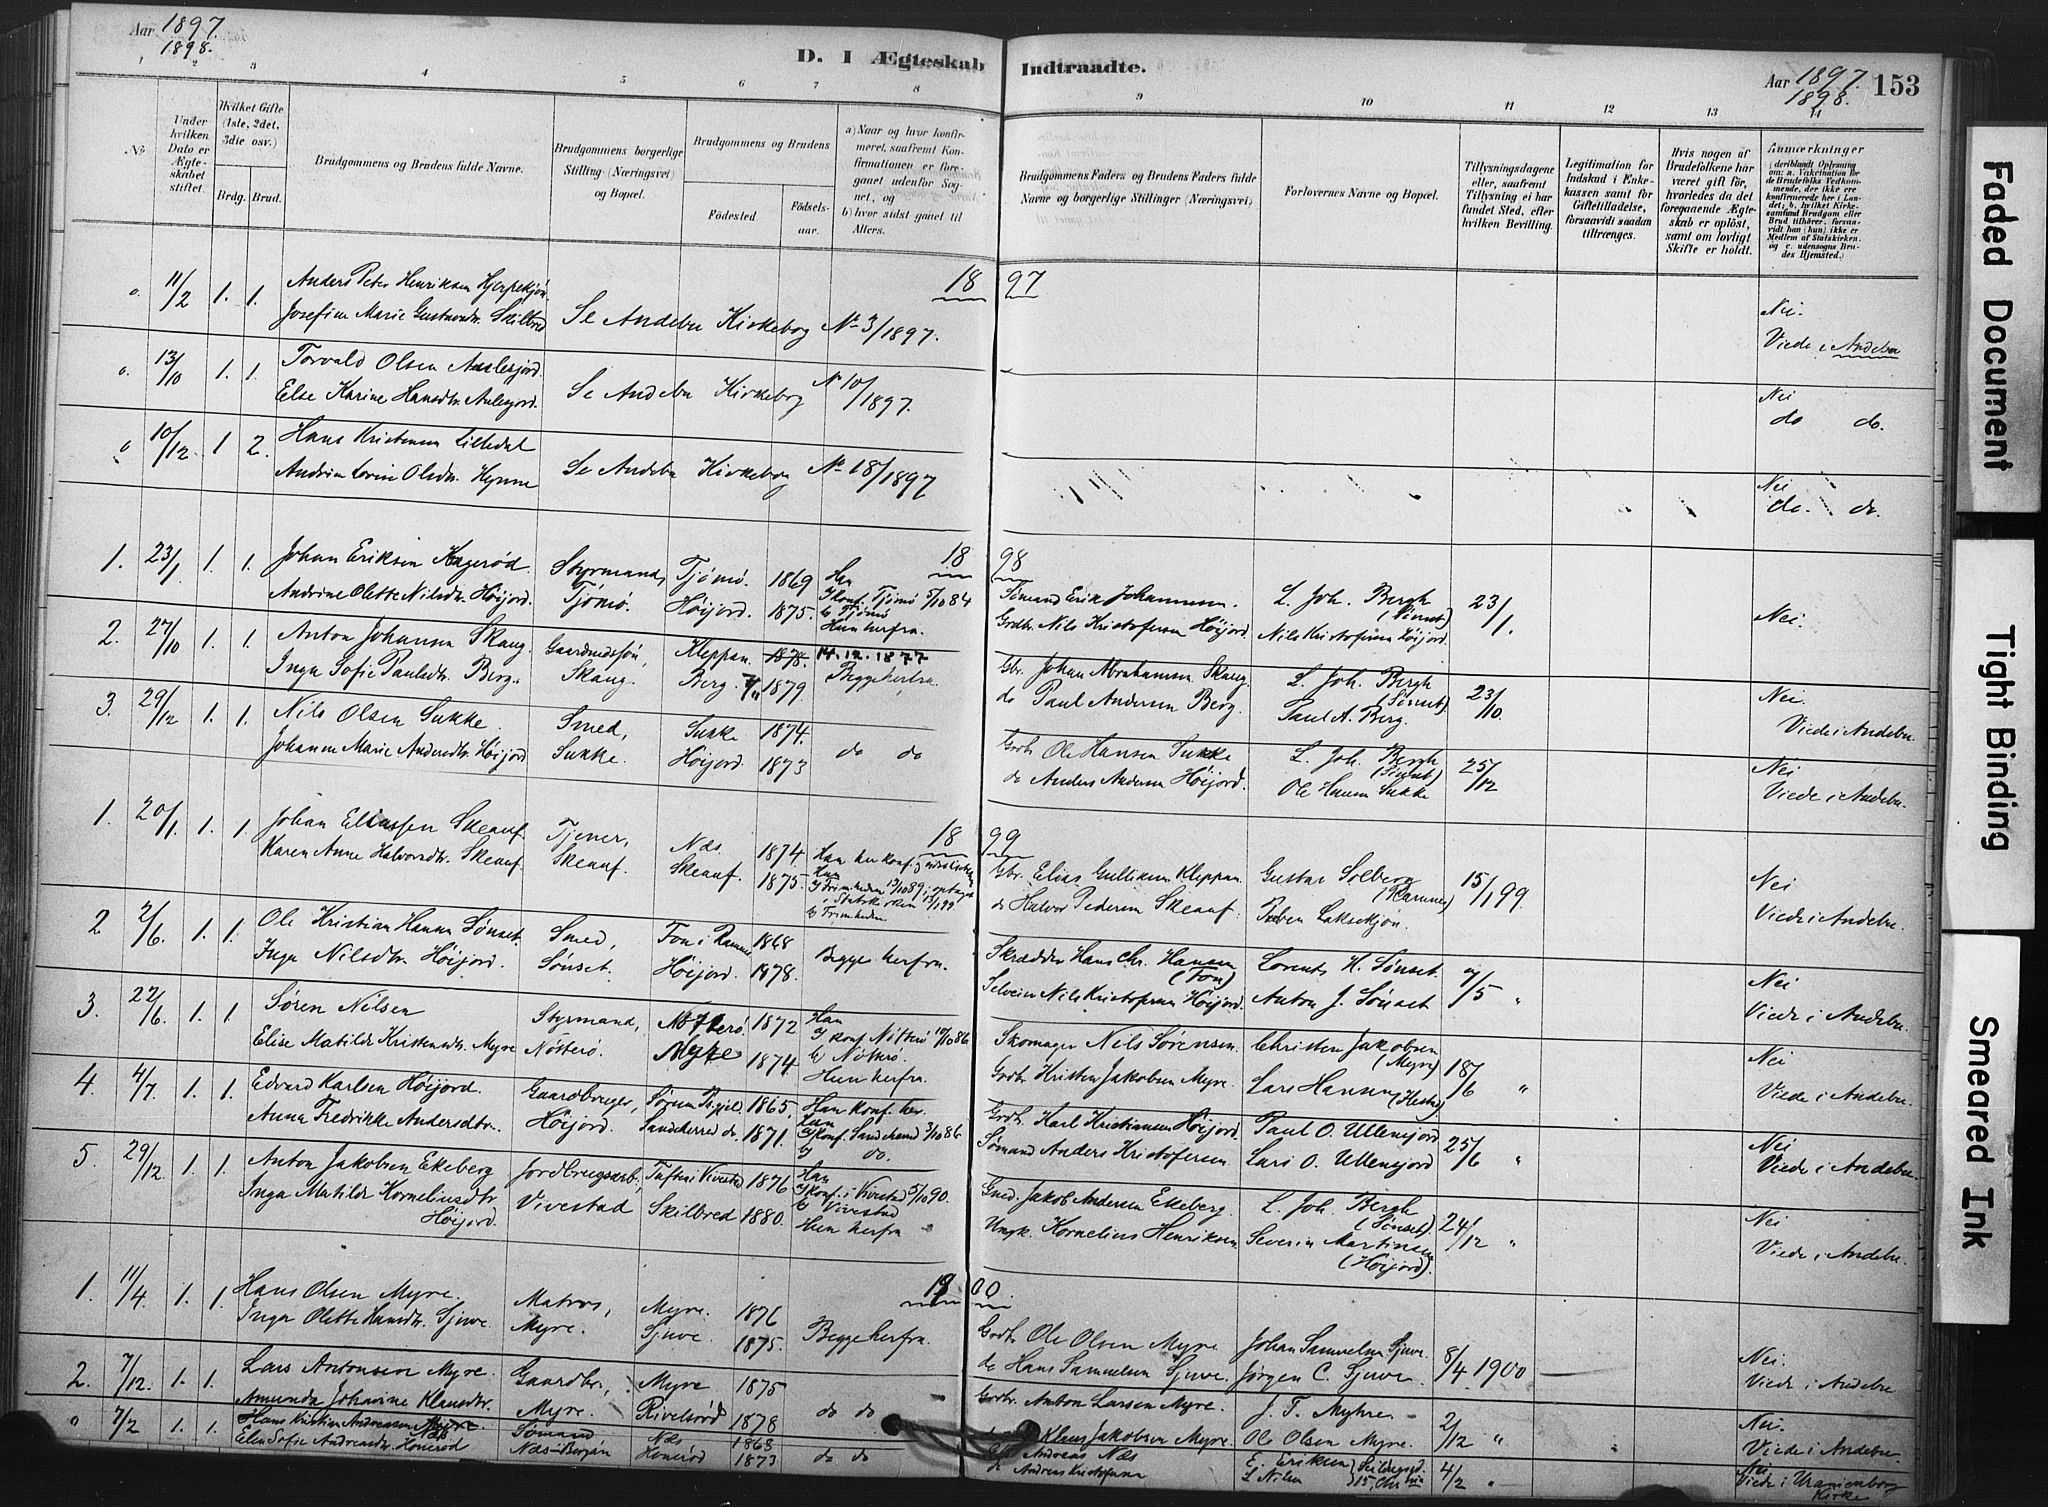 Aar 1897.
1898.
D. I Ægteskab Indtraadte.
Aar 1897.
1898.
153
1 2 3 4 5 6 7 8 9 10 11 12 13 14
No
Under hvilken Dato er Ægteskabet stiftet.
Hvilket Gifte (1ste, 2det, 3die osv.)
Brdg. Brud.
Brudgommens og Brudens fulde Navne.
Brudgommens borgerlige Stilling (Næringsvei) og Bopæl.
Brudgommens og Brudens
Fødested
Fødselsaar.
a) Naar og hvor konfirmeret, saafremt Konfirmationen er foregaaet udenfor Sognet, og
b) hvor sidst gaaet til Alters.
Brudgommens Faders og Brudens Faders fulde Navne og borgerlige Stillinger (Næringsvei)
Forlovernes Navne og Bopæl.
Tillysningsdagene eller, saafremt Tillysning ei har fundet Sted, efter hvilken Bevilling.
Legitimation for Indskud i Enkekassen samt for Giftetilladelse, forsaavidt saadan tiltrænges.
Hvis nogen af Brudefolkene har været gift før, hvorledes da det foregaaende Ægteskab er opløst, samt om lovligt Skifte er holdt.
Anmærkninger
(deriblandt Oplysning om: a. Vakcination for de Brudefolks Vedkommende, der ikke ere konfirmerede her i Landet, b. hvilket Kirkesamfund Brudgom eller Brud tilhører, forsavidt han (hun) ikke er Medlem af Statskirken, og c. udensogns Brudes Hjemsted.)
18 97
o. 11/2 1. 1. Anders Peter Henriksen Hjerpekjøn
Josefine Marie Gustavsdtr. Skilbred
Se Andebu Kirkebog No 3/1897.
Nei.
Viede i Andebu
o. 13/10 1. 1. Torvald Olsen Aulesjord.
Else Karine Hansdtr. Aulesjord.
Se Andebu Kirkebog No 10/1897.
Nei
do do.
o 10/12. 1 2. Hans Kristensen Lilledal
Andrine Lovise Olsdtr. Hynne
Se Andebu Kirkebog No 18/1897
Nei
do. do.
18 98
1. 23/1 1. 1. Johan Eriksen Hagerød. Styrmand, Tjømø. 1869 Han
a) Konf. Tjømø 5/10 84
b) Tjømø
Andrine Olette Nilsdtr. Høijord. Tjømø. Høijord. 1875. Hun herfra.
Sømand Erik Johannesen. L. Joh. Bergh (Sønset) 23/1.
Grdbr. Nils Kristofersen Høijord. Nils Kristofersen Høijord.
Nei.
2. 27/10 1. 1. Anton Johansen Skaug. Gaardmandssøn, Kleppan. 1878. 14.12.1877
Inga Sofie Paulsdtr. Berg. Skaug. Berg. 1879. Begge herfra.
Gbr. Johan Abrahamsen Skaug. L. Joh. Bergh (Sønset). 23/10.
do Paul Andersen Berg. Paul A. Berg.
Nei.
Viede i Andebu.
3. 29/12 1. 1. Nils Olsen Sukke. Smed, Sukke 1874.
Johanne Marie Andersdtr. Høijord Sukke. Høijord. 1873 do do
Grdb. Ole Hansen Sukke L. Joh. Bergh (Sønset) 25/12
do Anders Andersen Høijord. Ole Hansen Sukke
Nei
Viede i Andebu.
18 99
1. 20/1. 1. 1. Johan Eliassen Skeauf. Tjener, Næs 1874.
Karen Anne Halvorsdtr. Skeauf. Skeauf. Skeauf. 1875.
Gbr. Elias Gulliksen Kleppan. Gustav Solberg (Ramnes) 15/1 99.
do Halvor Pedersen Skeauf. Preben Laksekjøn.
Nei
Viede i Andebu.
2 2/6. 1. 1. Ole Kristian Hansen Sønset. Smed, Fon i Ramnes 1868
Inga Nilsdtr. Høijord. Sønset. Høijord. 1878. Begge herfra.
Skrædder Hans Chr. Hansen (Fon) Lorents H. Sønset. 7/5 "
Selveier Nils Kristofersen Høijord. Anton J. Sønset
Nei
Viede i Andebu.
3 22/6. 1. 1. Søren Nilsen Styrmand, Nøtterø. 1872 Han
a) Konf. Nøtterø 10/10 86
b) Nøtterø.
Elise Matilde Kristensdtr. Myre Nøtterø. Myre 1874 Hun herfra.
Skomager Nils Sørensen. Christen Jakobsen (Myre) 18/6 "
Grdb. Kristen Jakobsen Myre. Lars Hansen
Nei
Viede i Andebu.
4 4/7. 1. 1. Edvard Karlsen Høijord. Gaardbruger, 1865. Han konf. her.
Anna Fredrikke Andersdtr. Høijord. Sandeherred do. 1871. Hun a) Konf. Sandeherred 3/10 86.
b) do.
Grdb. Karl Kristiansen Høijord. Paul O. Ullensjord 25/6 "
Sømand Anders Kristofersen Lars O. Ullensjord
Nei
Viede i Andebu.
5. 29/12 1. 1. Anton Jakobsen Ekeberg Jordbrugsarb., Tufte i Vivestad 1876 Han
a) Konf. i Vivestad 5/10 90.
b) Vivestad
Inga Matilde Kornelinsdtr Høijord. Vivestad Skilbred 1880. Hun herfra
Gmd. Jakob Andersen Ekeberg. L. Joh. Bergh (Sønset). 24/12 "
Ungk. Kornelius Henriksen. Severin Martinsen (Høijord).
Nei
Viede i Andebu.
19 00.
1. 11/4. 1. 1. Hans Olsen Myre. Matros, Myre. 1876
Inga Olette Hansdtr. Sjuve. Myre. Sjuve. 1875. Begge herfra.
Grdb. Ole Olsen Myre Johan Samuelsen Sjuve. 8/4 1900
do Hans Samuelsen Sjuve. Jørgen C. Sjuve.
Nei.
Viede i Andebu
2. 7/12. 1. 1. Lars Antonsen Myre. Gaardbr., Myre 1875
Amunda Johanne Klausdtr. Myre. Rivelsrød 1878 do do
Grdbr. Anton Larsen Myre. J. T. Myhre. 2/12 "
Klaus Jakobsen Myre. Ole Olsen Myre.
Nei.
Viede i Andebu.
o 7/2 1. 1. Hans Kristian Andreassen Næs Sømand Næs 1868
Elen Sofie Andreasdtr. Honerød Næs-Bergan Honerød 1873 do do
Andreas Næs E. Eriksen 4/2 "
do Andreas Kristofersen L. Nilsen
Nei
Viede i Uranienborg Kirke
Faded Document
Tight Binding
Smeared Ink